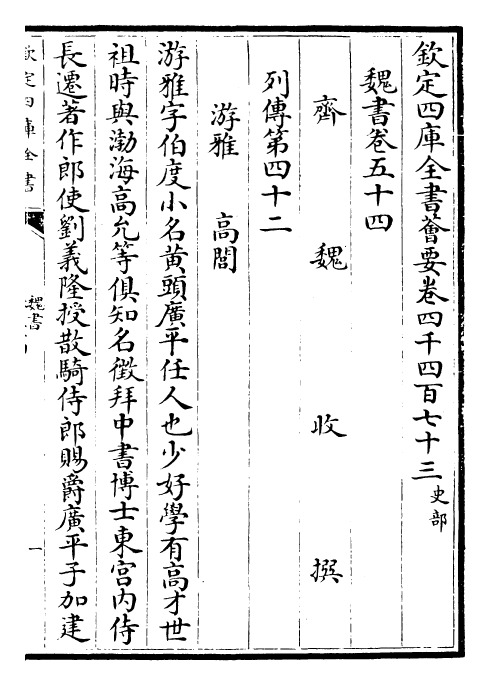 欽定四庫全書薈要卷四千四百七十三 史部
魏書卷五十四
齊 魏 收 撰
列傳第四十二
游雅 高閭
游雅字伯度小名黄頭廣平任人也少好學有高才世
祖時與渤海高允等俱知名徵拜中書博士東宫内侍
長遷著作郎使劉義隆授散騎侍郎賜爵廣平子加建
欽定四庫全書
魏書
一